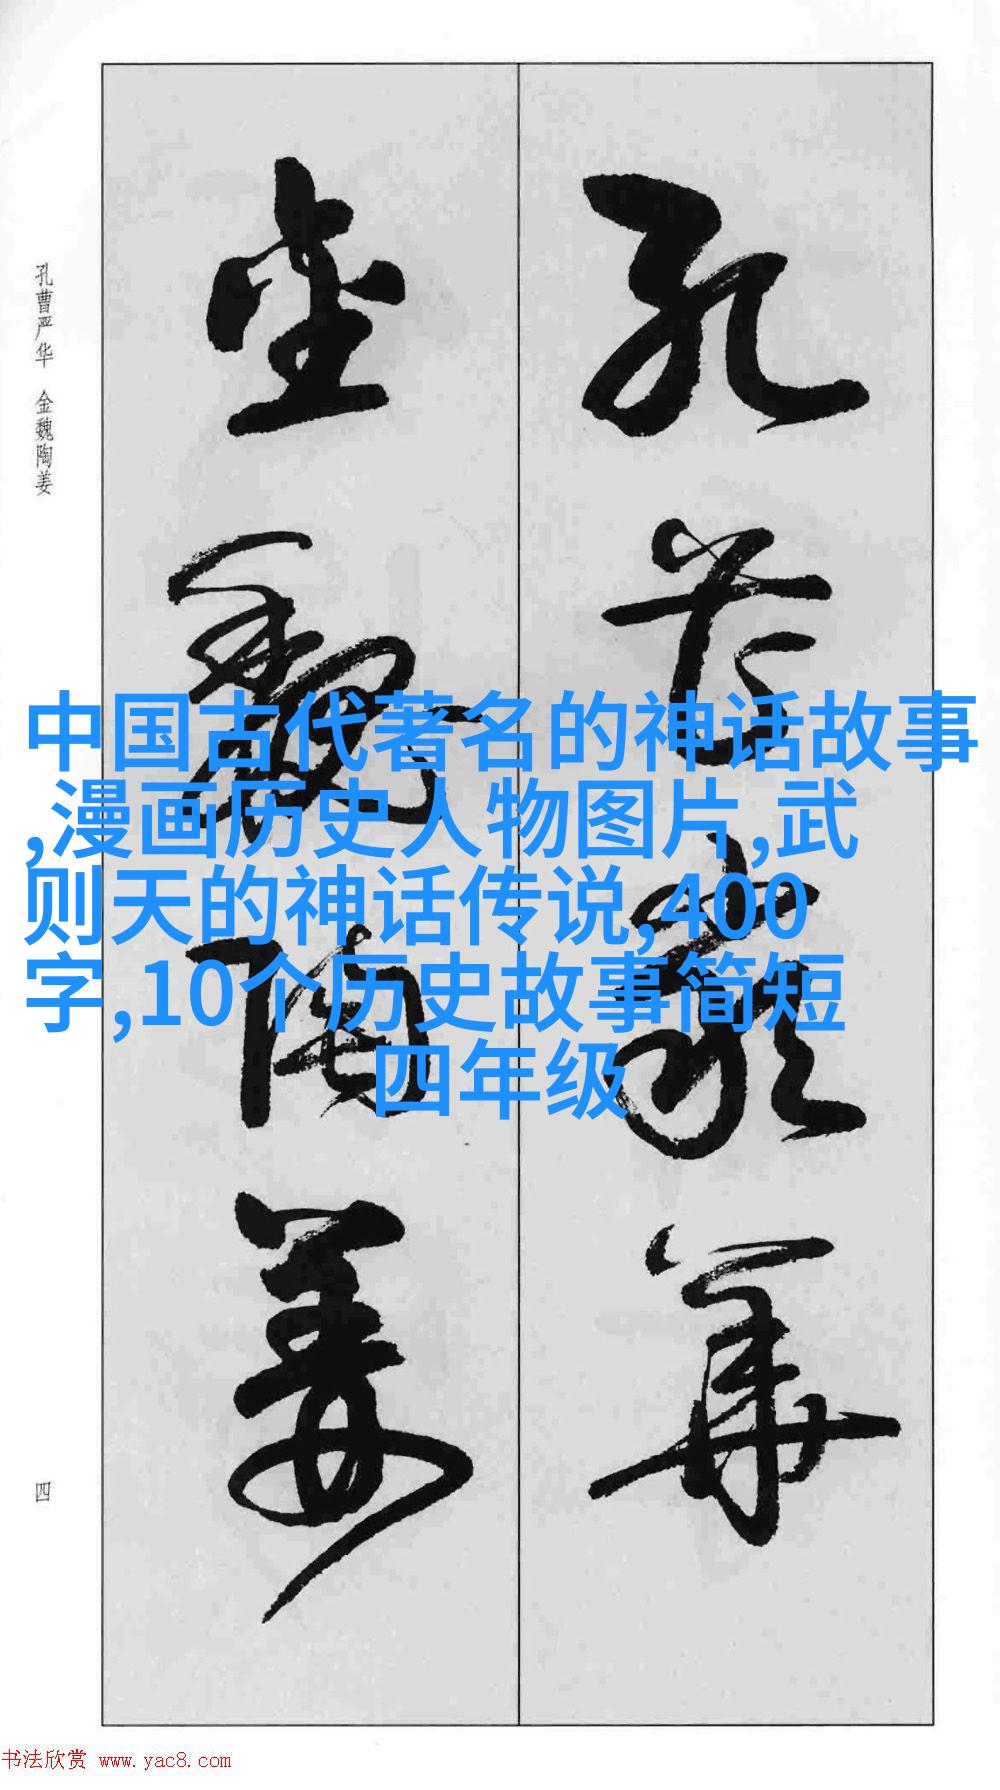 孔曹严华 金魏陶姜
孔曹严华
金魏陶姜
中国古代著名的神话故事
,漫画历史人物图片,武
则天的神话传说,400
字,10个历史故事简短
四年级
四
书法欣赏 www.yac8.com